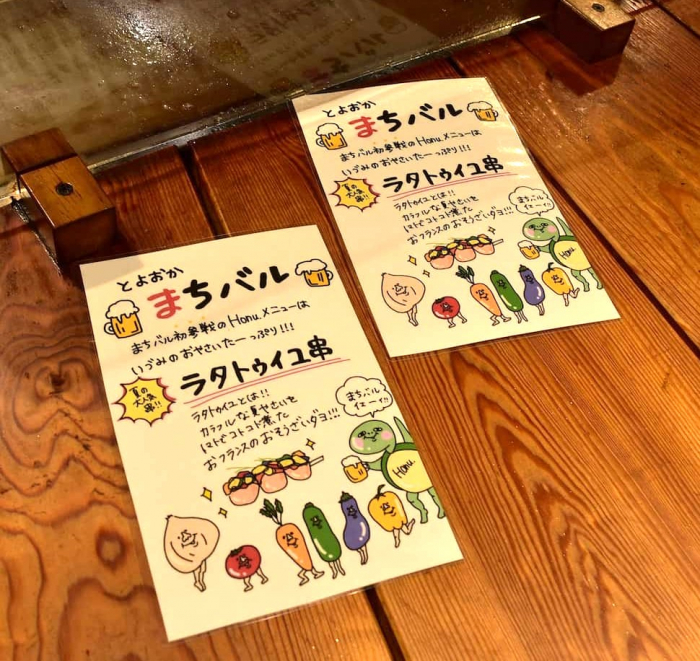 とよおか
まちバル
まちバル初参戦のHonuメニューは
いづみのおやさいたーっぷり!!!
夏の
大人気
串!!
ラタトゥイユ串
ラタトゥイユとは!!
カラフルな夏やさいを
トマトでコトコト煮た
おフランスのおそうざいダヨ!!!
まちバル
イェーイ!!
Honu
とよおか
まちバル
まちバル初参戦のHonuメニューは
いづみのおやさいたーっぷり!!!
夏の
大人気
串!!
ラタトゥイユ串
ラタトゥイユとは!!
カラフルな夏やさいを
トマトでコトコト煮た
おフランスのおそうざいダヨ!!!
まちバル
イェーイ!!
Honu